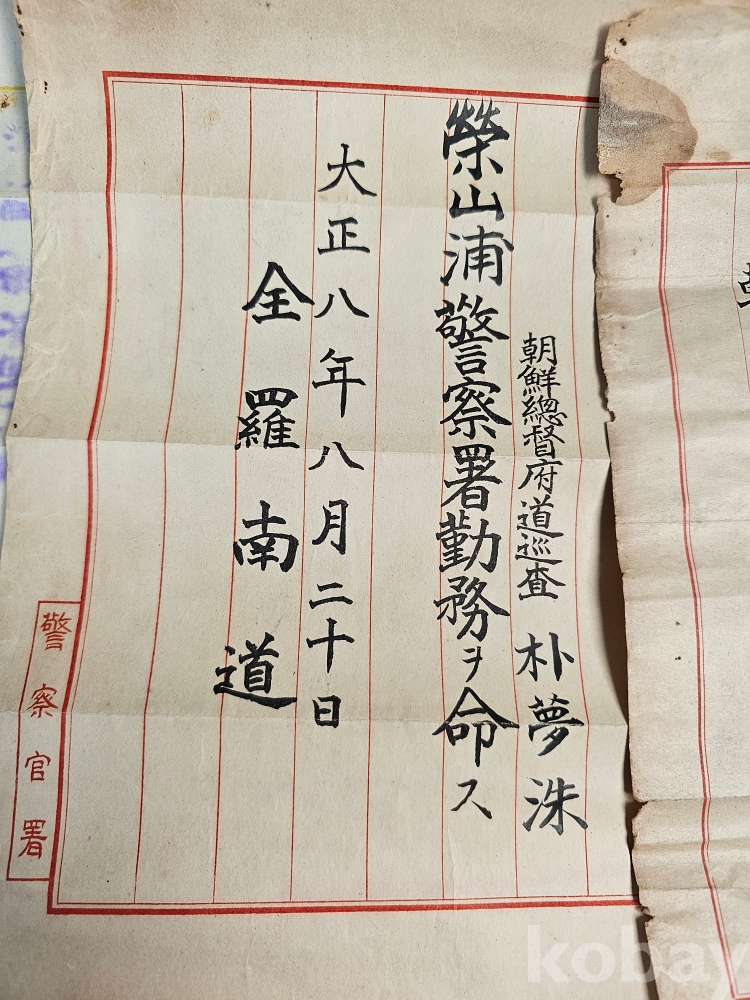 朝鮮總督府道巡査 朴夢洙
榮山浦警察署勤務ヲ命ス
大正八年八月二十日
全羅南道
警察官署
kobay